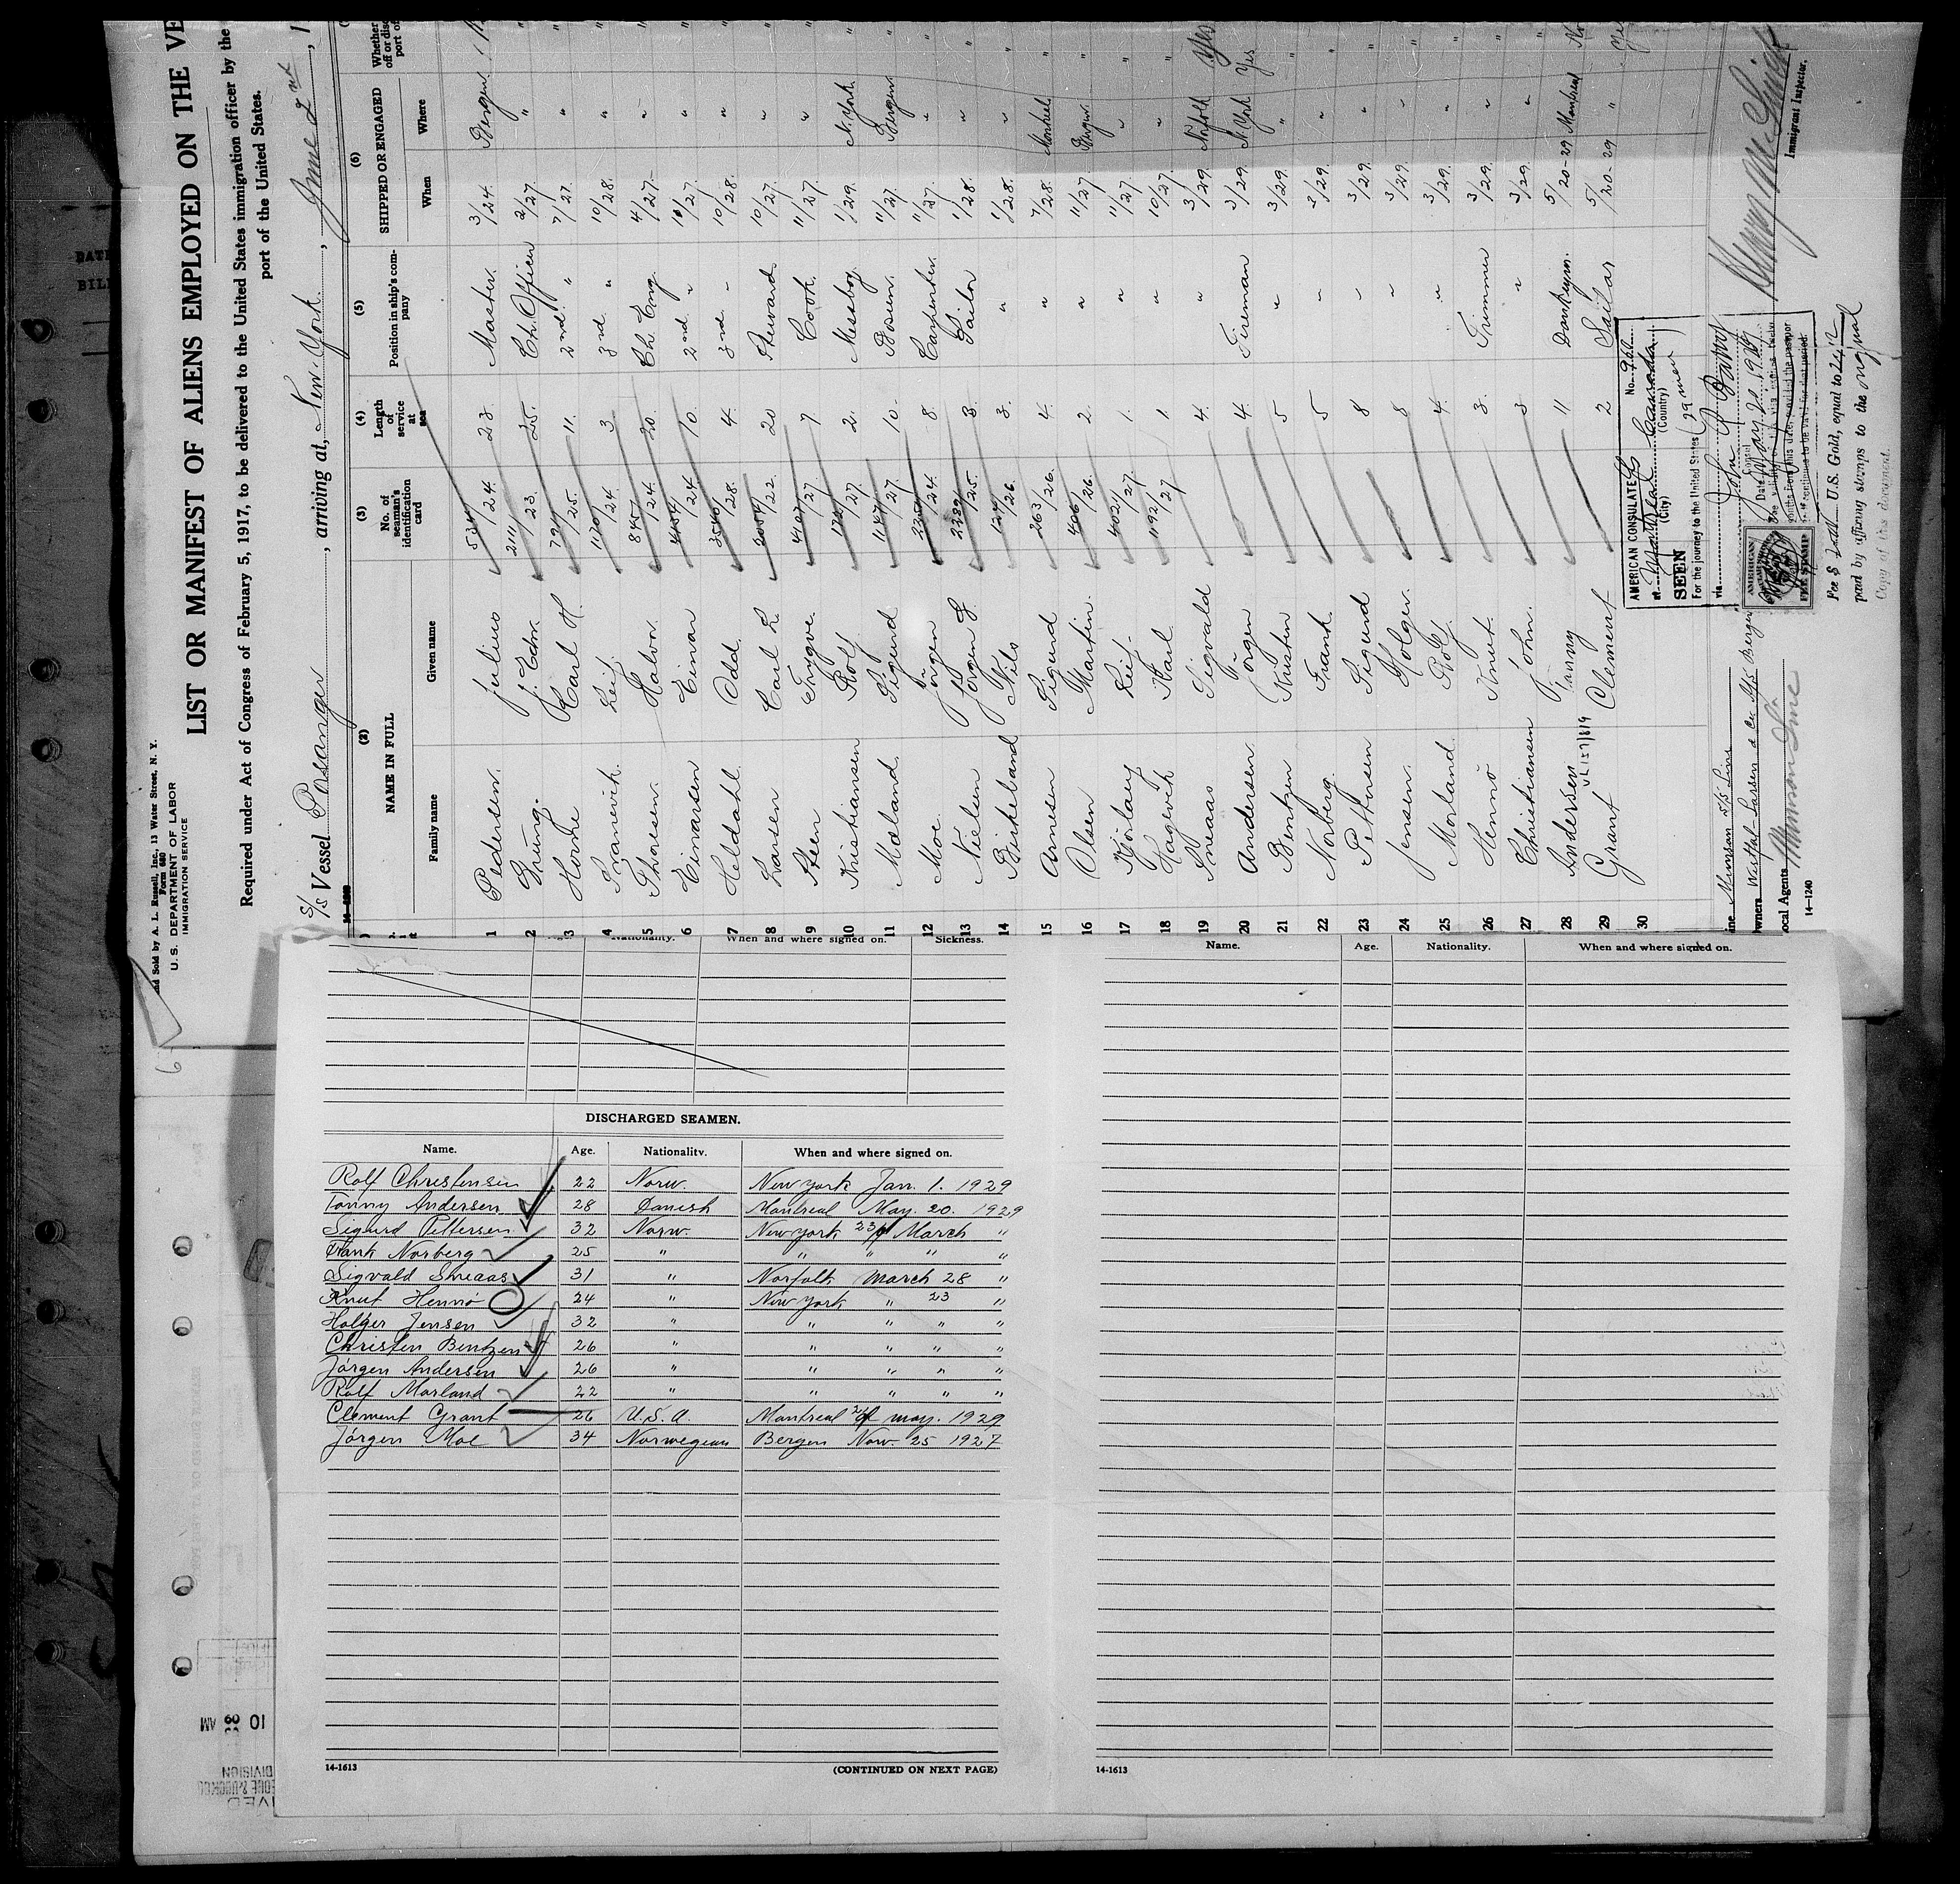 and Sold by A. L. Russell, Inc., 13 Water Street, N. Y.
Form 680
U. S. DEPARTMENT OF LABOR
IMMIGRATION SERVICE
LIST OR MANIFEST OF ALIENS EMPLOYED ON THE VE
Required under Act of Congress of February 5, 1917, to be delivered to the United States immigration officer by the
port of the United States.
S/S Vessel Posanger, arriving at, New-York., June 2nd, 1
(2) (3) (4) (5) (6)
NAME IN FULL No. of seaman's identification card Length of service at sea Position in ship's company SHIPPED OR ENGAGED
Family name Given name When Where
1 Pedersen. Julius 534/24. 23. Master. 3/24. Bergen.
2 Grung. J. Edm. 2111/23. 25. Ch. Officer 2/27. "
3 Horne Carl H. 11. 2nd. " 7/27. "
4 Leif. 1170/24. 3. 3nd. " 10/28. "
5 Thoresen. Halvor. 845/24. 20. Ch. Eng. 4/27. "
6 Einarsen Einar 4454/24 10. 2nd. " 10/27. "
7 Heldahl. Odd. 3540/28. 4. 3nd. " 10/28. "
8 Larsen Carl L. 2054/22. 20 Steward. 10/27. "
9 Steen Trygve. 4107/27. 7 Cook. 11/27. "
10 Kristiansen Rolf 27. 2. Messboy. 1/29. N. York.
11 Mæland. Sigurd 1147/27. 10. Bosun. 11/27. Bergen.
12 Moe. Jörgen 24. 8. Carpenter. 11/27. "
13 Nielsen Jörgen J. 2282/25. 3. Sailor 1/28. "
14 Birkeland Nils 26. 3. " 11/28. "
15 Arnesen Sigurd 263/26. 4. " 7/28. Montreal
16 Olsen Martin. 4461/26. 2. " 11/27. Bergen.
17 Leif. 4021/27. 1. " 11/27. "
18 Hagevik Karl. 1192/27. 1 " 10/27. "
19 Sneaas Sigvald 4. " 3/29. Norfolk Yes
20 Andersen. Jörgen 4. Fireman 3/29. N. York Yes
21 Bentzen Kristen 5 " 3/29. " "
22 Norberg. Frank. 5 " 3/29. " "
23 Pettersen Sigurd 8 " 3/29. " "
24 Jensen. Holger. 8 " 3/29. " "
25 Morland. Rolf. 4. " 3/29. " "
26 Hennö Knut. 3. Trimmer 3/29. " "
27 Christiansen John. 3 " 3/29. " "
28 Andersen 11 Donkeyman. 5/20-29 Montreal No
29 Grant Clement 2 Sailor 5/20-29 " Yes
30
AMERICAN CONSULATE No. 960
at Montreal Canada
(City) (Country)
SEEN
For the journey to the United States (29 men)
via
Date May 21 1929
Consul
AMERICAN
FEE STAMP
Fee $ U.S. Gold, equal to
paid by affixing stamps to the original
Copy of this document.
Immigrant Inspector.
Munson S/S Line
Owners Westfal-Larsen & Co. A/S Bergen
Local Agents Munson Line
14-1240
Nationality. When and where signed on. Sickness.
Name. Age. Nationality. When and where signed on.
DISCHARGED SEAMEN.
Name. Age. Nationality. When and where signed on.
Rolf Christensen 22 Norw. New york Jan. 1. 1929
Tonny Andersen 28 Danish Montreal May. 20. 1929
Sigurd Pettersen 32 Norw. New york 23/ March "
Frank Norberg 25 " " " " "
Sigvald Sneaas 31 " Norfolk March 28 "
Knut Hennö 24 " New york " 23 "
Holger Jensen 32 " " " " "
Christen Bentzen 26 " " " " "
Jörgen Andersen 26 " " " " "
Rolf Morland 22 " " " " "
Clement Grant 26 U.S.A. Montreal may. 1929
Jörgen Moe 34 Norwegian Bergen Nov. 25 1927
14-1613 (CONTINUED ON NEXT PAGE)
14-1613